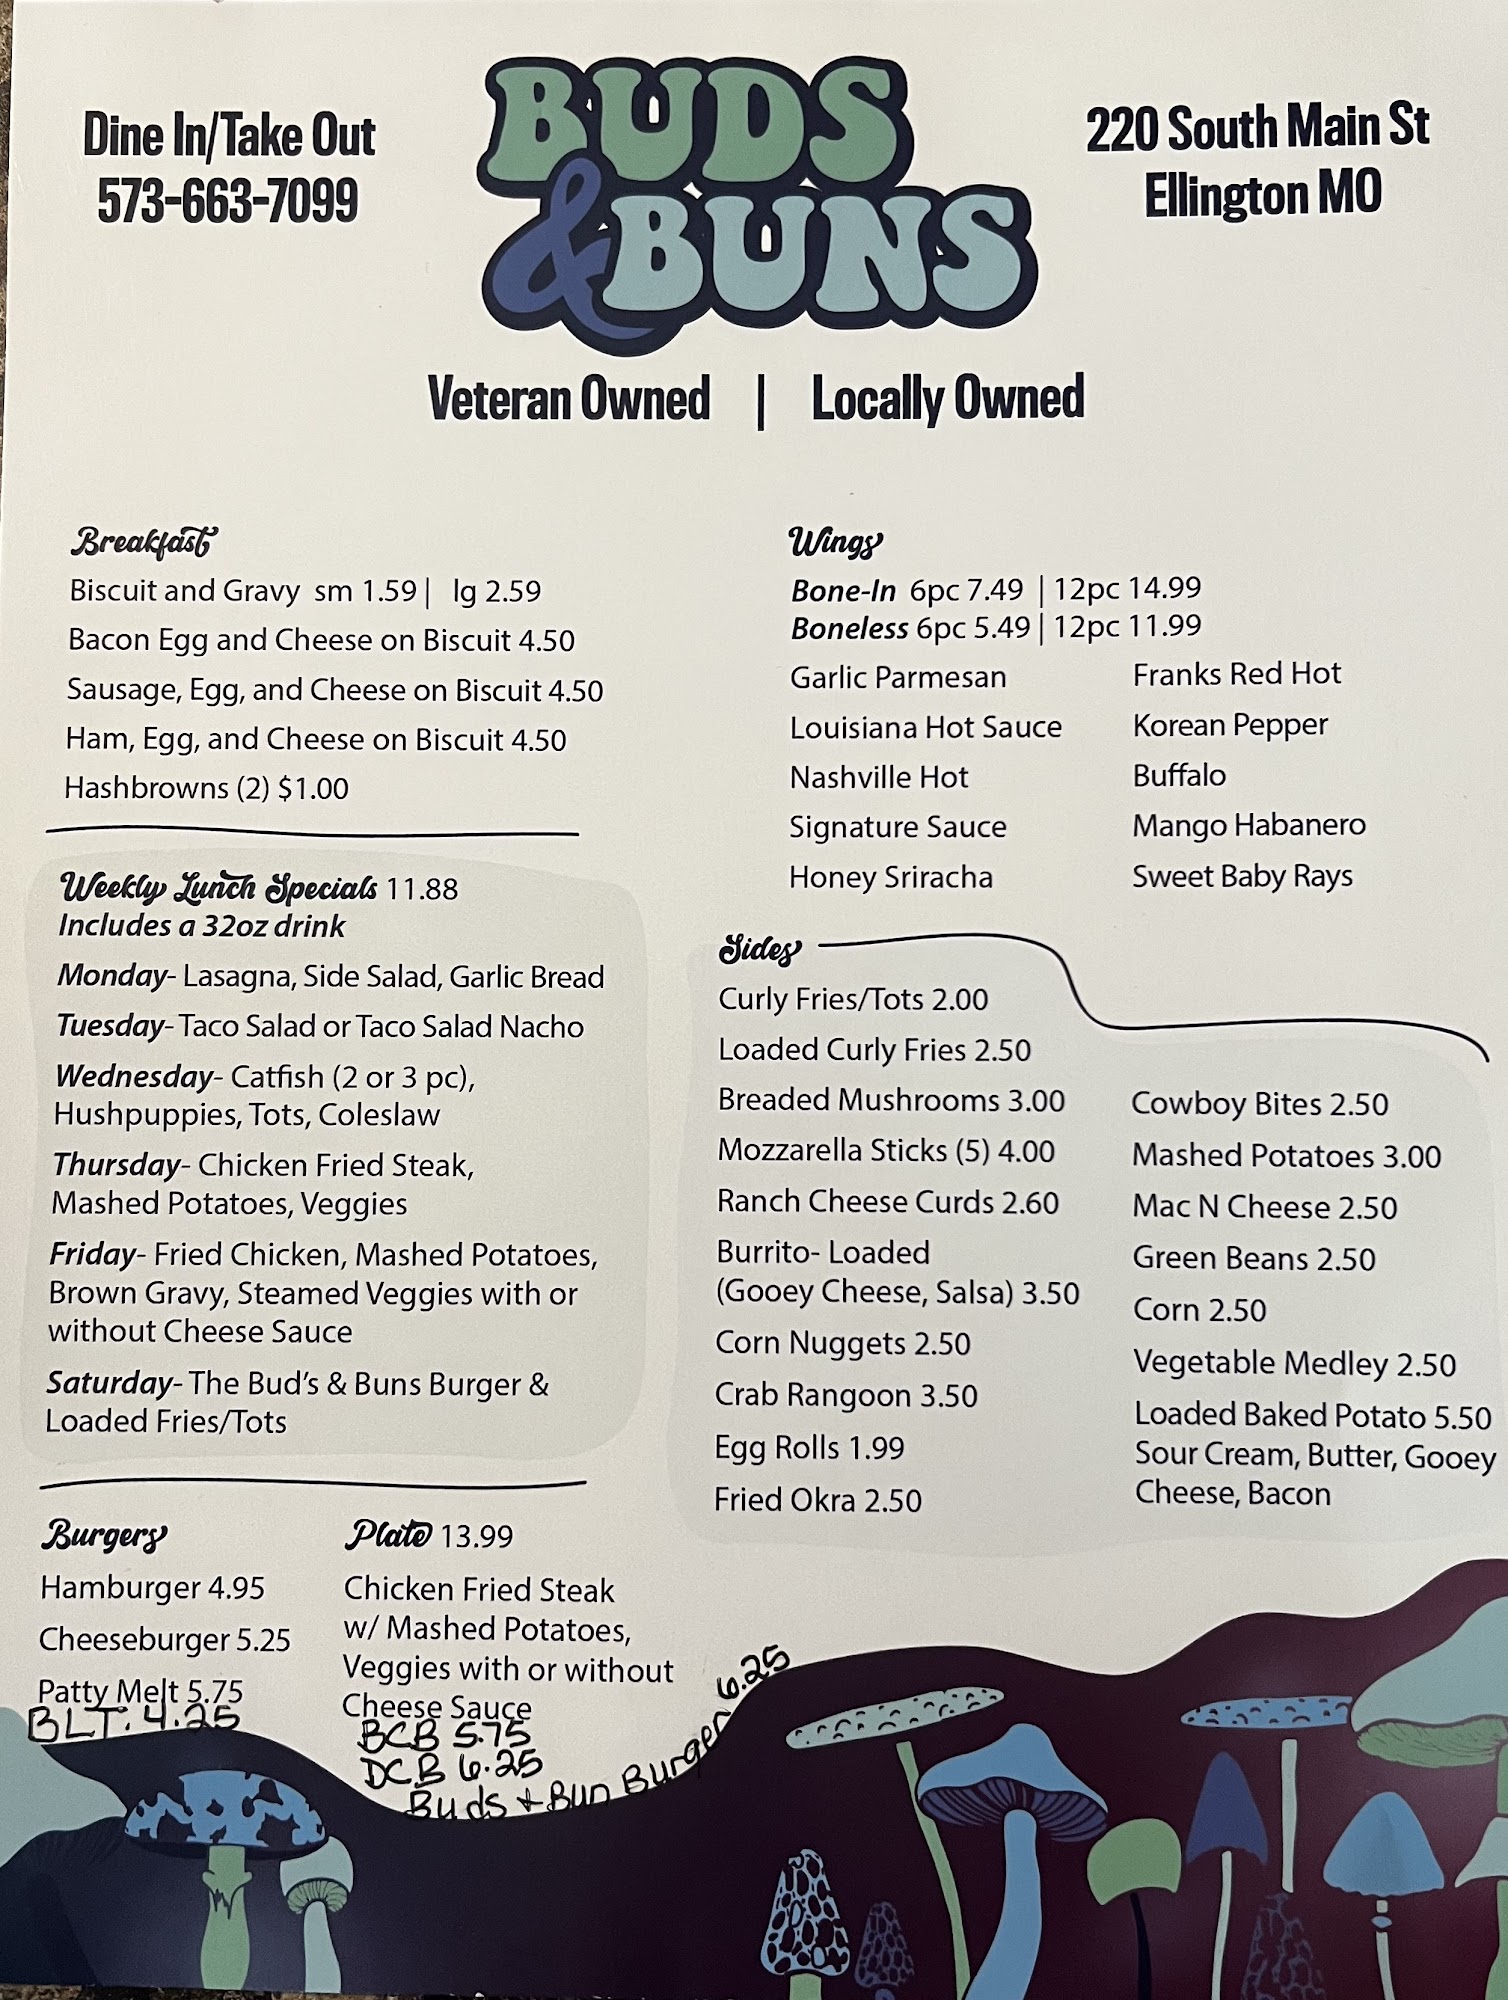 Dine In/Take Out
573-663-7099
BUDS
& BUNS
220 South Main St
Ellington MO
Veteran Owned | Locally Owned
Breakfast
Biscuit and Gravy sm 1.59 | lg 2.59
Bacon Egg and Cheese on Biscuit 4.50
Sausage, Egg, and Cheese on Biscuit 4.50
Ham, Egg, and Cheese on Biscuit 4.50
Hashbrowns (2) $1.00
Weekly Lunch Specials 11.88
Includes a 32oz drink
Monday- Lasagna, Side Salad, Garlic Bread
Tuesday- Taco Salad or Taco Salad Nacho
Wednesday- Catfish (2 or 3 pc),
Hushpuppies, Tots, Coleslaw
Thursday- Chicken Fried Steak,
Mashed Potatoes, Veggies
Friday- Fried Chicken, Mashed Potatoes,
Brown Gravy, Steamed Veggies with or
without Cheese Sauce
Saturday- The Bud's & Buns Burger &
Loaded Fries/Tots
Burgers
Hamburger 4.95
Cheeseburger 5.25
Patty Melt 5.75
BLT. 4.25
Plate 13.99
Chicken Fried Steak
w/ Mashed Potatoes,
Veggies with or without
Cheese Sauce
BCB 5.75
DCB 6.25
Buds + Bun Burger 6.25
Wings
Bone-In 6pc 7.49 | 12pc 14.99
Boneless 6pc 5.49 | 12pc 11.99
Garlic Parmesan
Louisiana Hot Sauce
Nashville Hot
Signature Sauce
Honey Sriracha
Franks Red Hot
Korean Pepper
Buffalo
Mango Habanero
Sweet Baby Rays
Sides
Curly Fries/Tots 2.00
Loaded Curly Fries 2.50
Breaded Mushrooms 3.00
Mozzarella Sticks (5) 4.00
Ranch Cheese Curds 2.60
Burrito- Loaded
(Gooey Cheese, Salsa) 3.50
Corn Nuggets 2.50
Crab Rangoon 3.50
Egg Rolls 1.99
Fried Okra 2.50
Cowboy Bites 2.50
Mashed Potatoes 3.00
Mac N Cheese 2.50
Green Beans 2.50
Corn 2.50
Vegetable Medley 2.50
Loaded Baked Potato 5.50
Sour Cream, Butter, Gooey
Cheese, Bacon